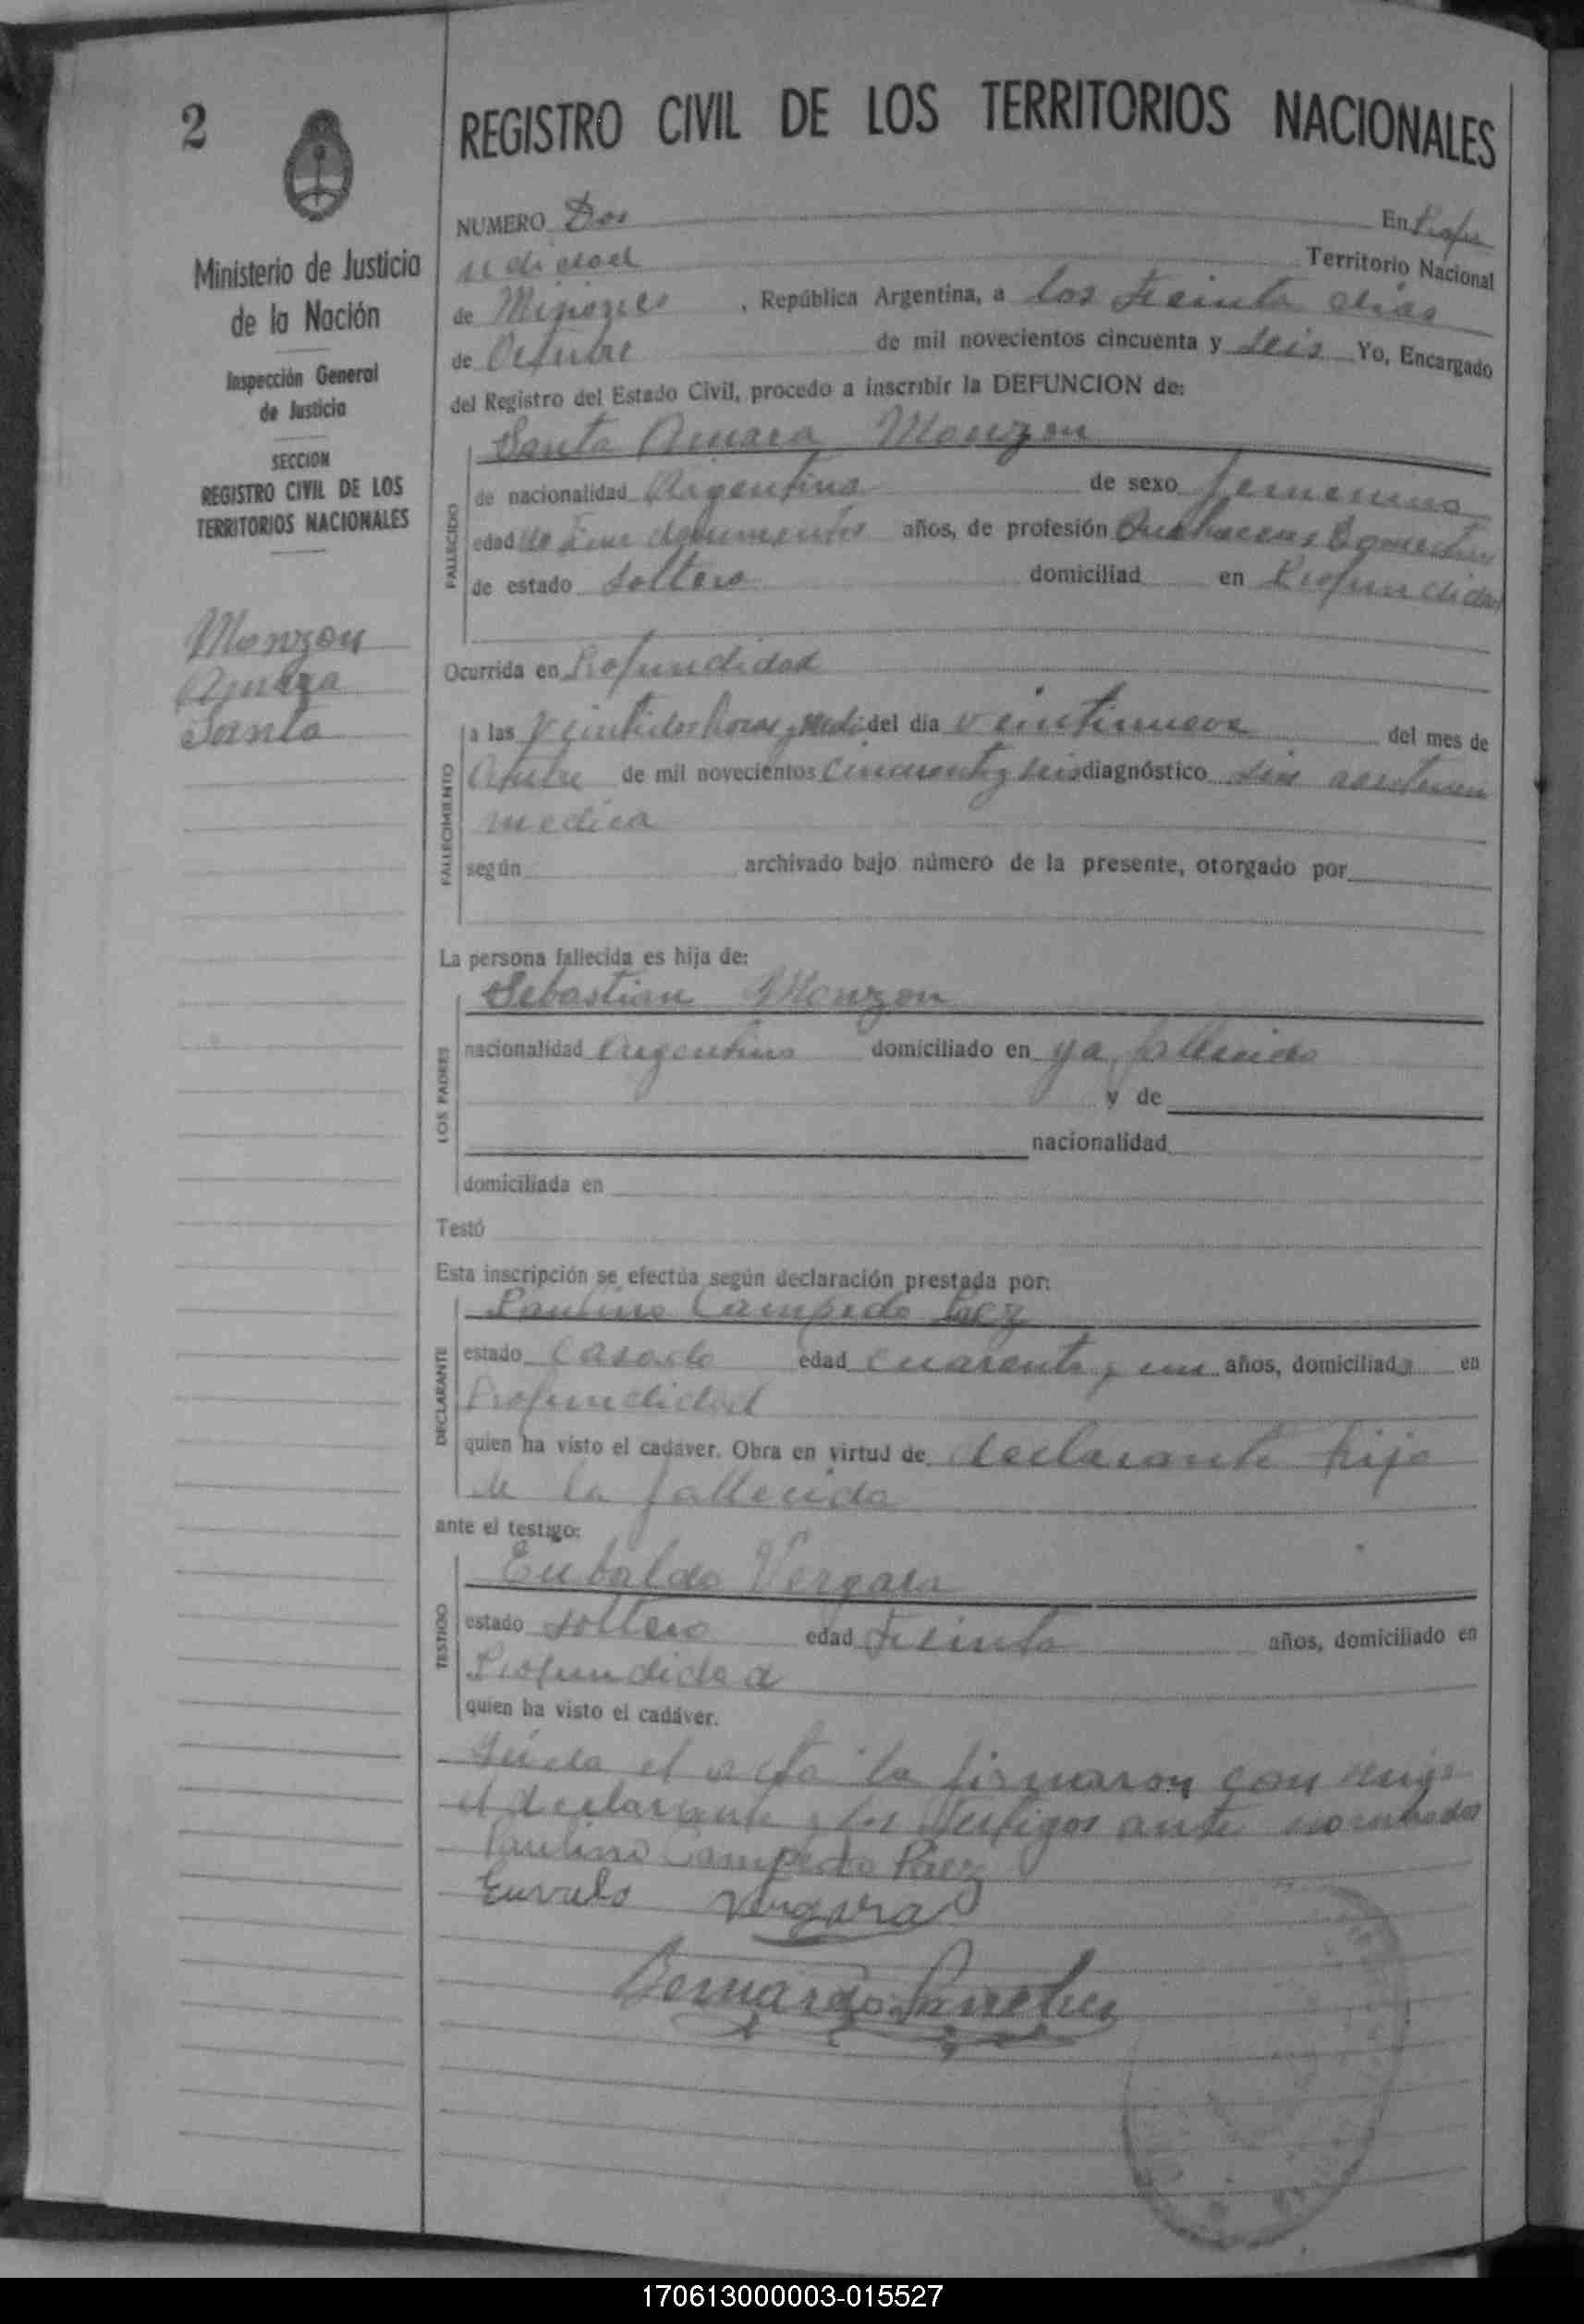 2
Ministerio de Justicia
de la Nación
Inspección General
de Justicia
SECCION
REGISTRO CIVIL DE LOS
TERRITORIOS NACIONALES
Monzon
Amara
Santa
REGISTRO CIVIL DE LOS TERRITORIOS NACIONALES
NUMERO Dos En Profu
ndidad Territorio Nacional
de Misiones , República Argentina, a los treinta dias
de Octubre de mil novecientos cincuenta y seis Yo, Encargado
del Registro del Estado Civil, procedo a inscribir la DEFUNCION de:
Santa Amara Monzon
FALLECIDO
de nacionalidad Argentina de sexo femenino
edad no tiene documentos años, de profesión Quehaceres Domesticos
de estado soltero domiciliad en Profundidad
Ocurrida en Profundidad
FALLECIMIENTO
a las veintidos horas y media del dia veintinueve del mes de
Octubre de mil novecientos cincuenta y seis diagnóstico sin asistencia
medica
según archivado bajo número de la presente, otorgado por
La persona fallecida es hija de:
Sebastian Monzon
LOS PADRES
nacionalidad Argentino domiciliado en ya fallecido
y de
nacionalidad
domiciliada en
Testó
Esta inscripción se efectúa según declaración prestada por:
Paulino Campedo Paez
DECLARANTE
estado Casado edad cuarenta y un años, domiciliado en
Profundidad
quien ha visto el cadaver. Obra en virtud de declarante hijo
de la fallecida
ante el testigo:
Eubaldo Vergara
TESTIGO
estado soltero edad treinta años, domiciliado en
Profundidad
quien ha visto el cadáver.
Leida el acta la firmaron con migo
el declarante y los testigos ante nombrados
Paulino Campedo Páez
Euvaldo Vergara
Bernardo Sanchez
170613000003-015527